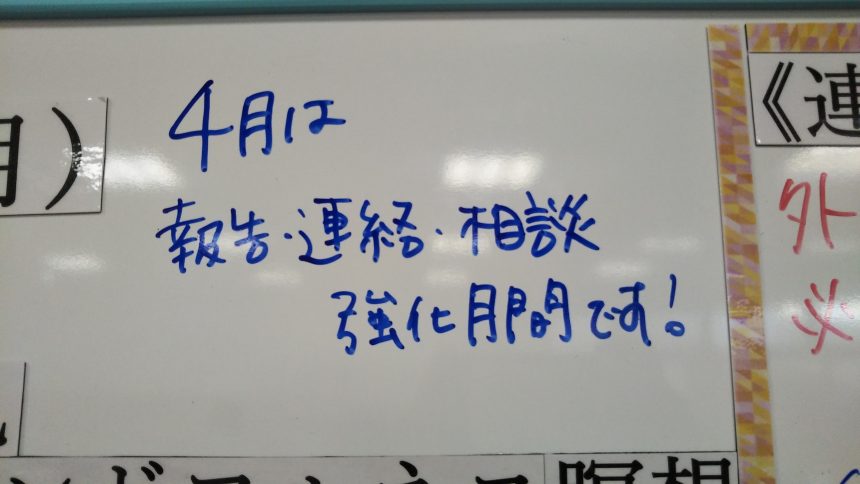 4月は
報告・連絡・相談
強化月間です!
月)
《連
外
必
瞑想